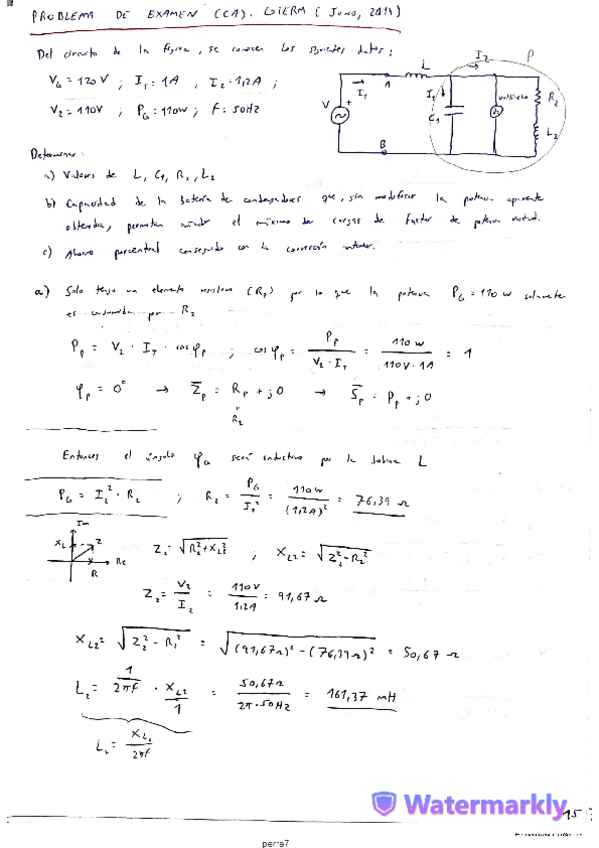 PROBLEMA DE EXAMEN (CA). GIERM (JUNIO, 2014)
Del circuito de la figura, se conocen los siguientes datos:
V_G = 120V ; I_T = 1A , I_2 = 1,2A ;
V_2 = 110V ; P_G = 110W ; f = 50Hz
V
+
I_T
1
L
I_2
P
I_1
C_1
voltímetro
V_2
R_2
L_2
B
Determinar:
a) Valores de L, C_1, R_2, L_2
b) Capacidad de la batería de condensadores que, sin modificar la potencia aparente
obtenida, permitan añadir el máximo de cargas de factor de potencia unidad.
c) Ahorro porcentual conseguido con la corrección anterior.
a) Solo tengo un elemento resistivo (R_2) por lo que la potencia P_G = 110W solamente
es consumida por R_2
P_p = V_2 · I_T · cosφ_p ; cosφ_p = P_p / (V_2 · I_T) = 110W / (110V · 1A) = 1
φ_p = 0° → Z_p = R_p + j0 → S_p = P_p + j0
R_2
Entonces el ángulo φ_G será inductivo por la bobina L
P_G = I_2² · R_2 ; R_2 = P_G / I_2² = 110W / (1,2A)² = 76,39 Ω
Im
X_L
Z
R
Re
Z_2 = √(R_2² + X_L2²) ; X_L2 = √(Z_2² - R_2²)
Z_2 = V_2 / I_2 = 110V / 1,2A = 91,67 Ω
X_L2 = √(Z_2² - R_2²) = √((91,67Ω)² - (76,39Ω)²) = 50,67 Ω
L_2 = 1 / 2πf · X_L2 / 1 = 50,67Ω / 2π·50Hz = 161,37 mH
L_2 = X_L2 / 2πf
Watermarkly
15
perre7